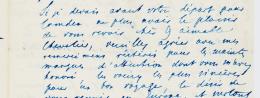 Si je devais avant votre départ pour
Londres ne plus avoir le plaisir
de vous revoir cher & aimable
Chevalier, veuillez agréer avec mes
remerciements réitérés pour les maintes
marques d'attention dont vous m'avez
honoré les vœux les plus sincères
pour un bon voyage, le désir de
vous en Europe, et surtout